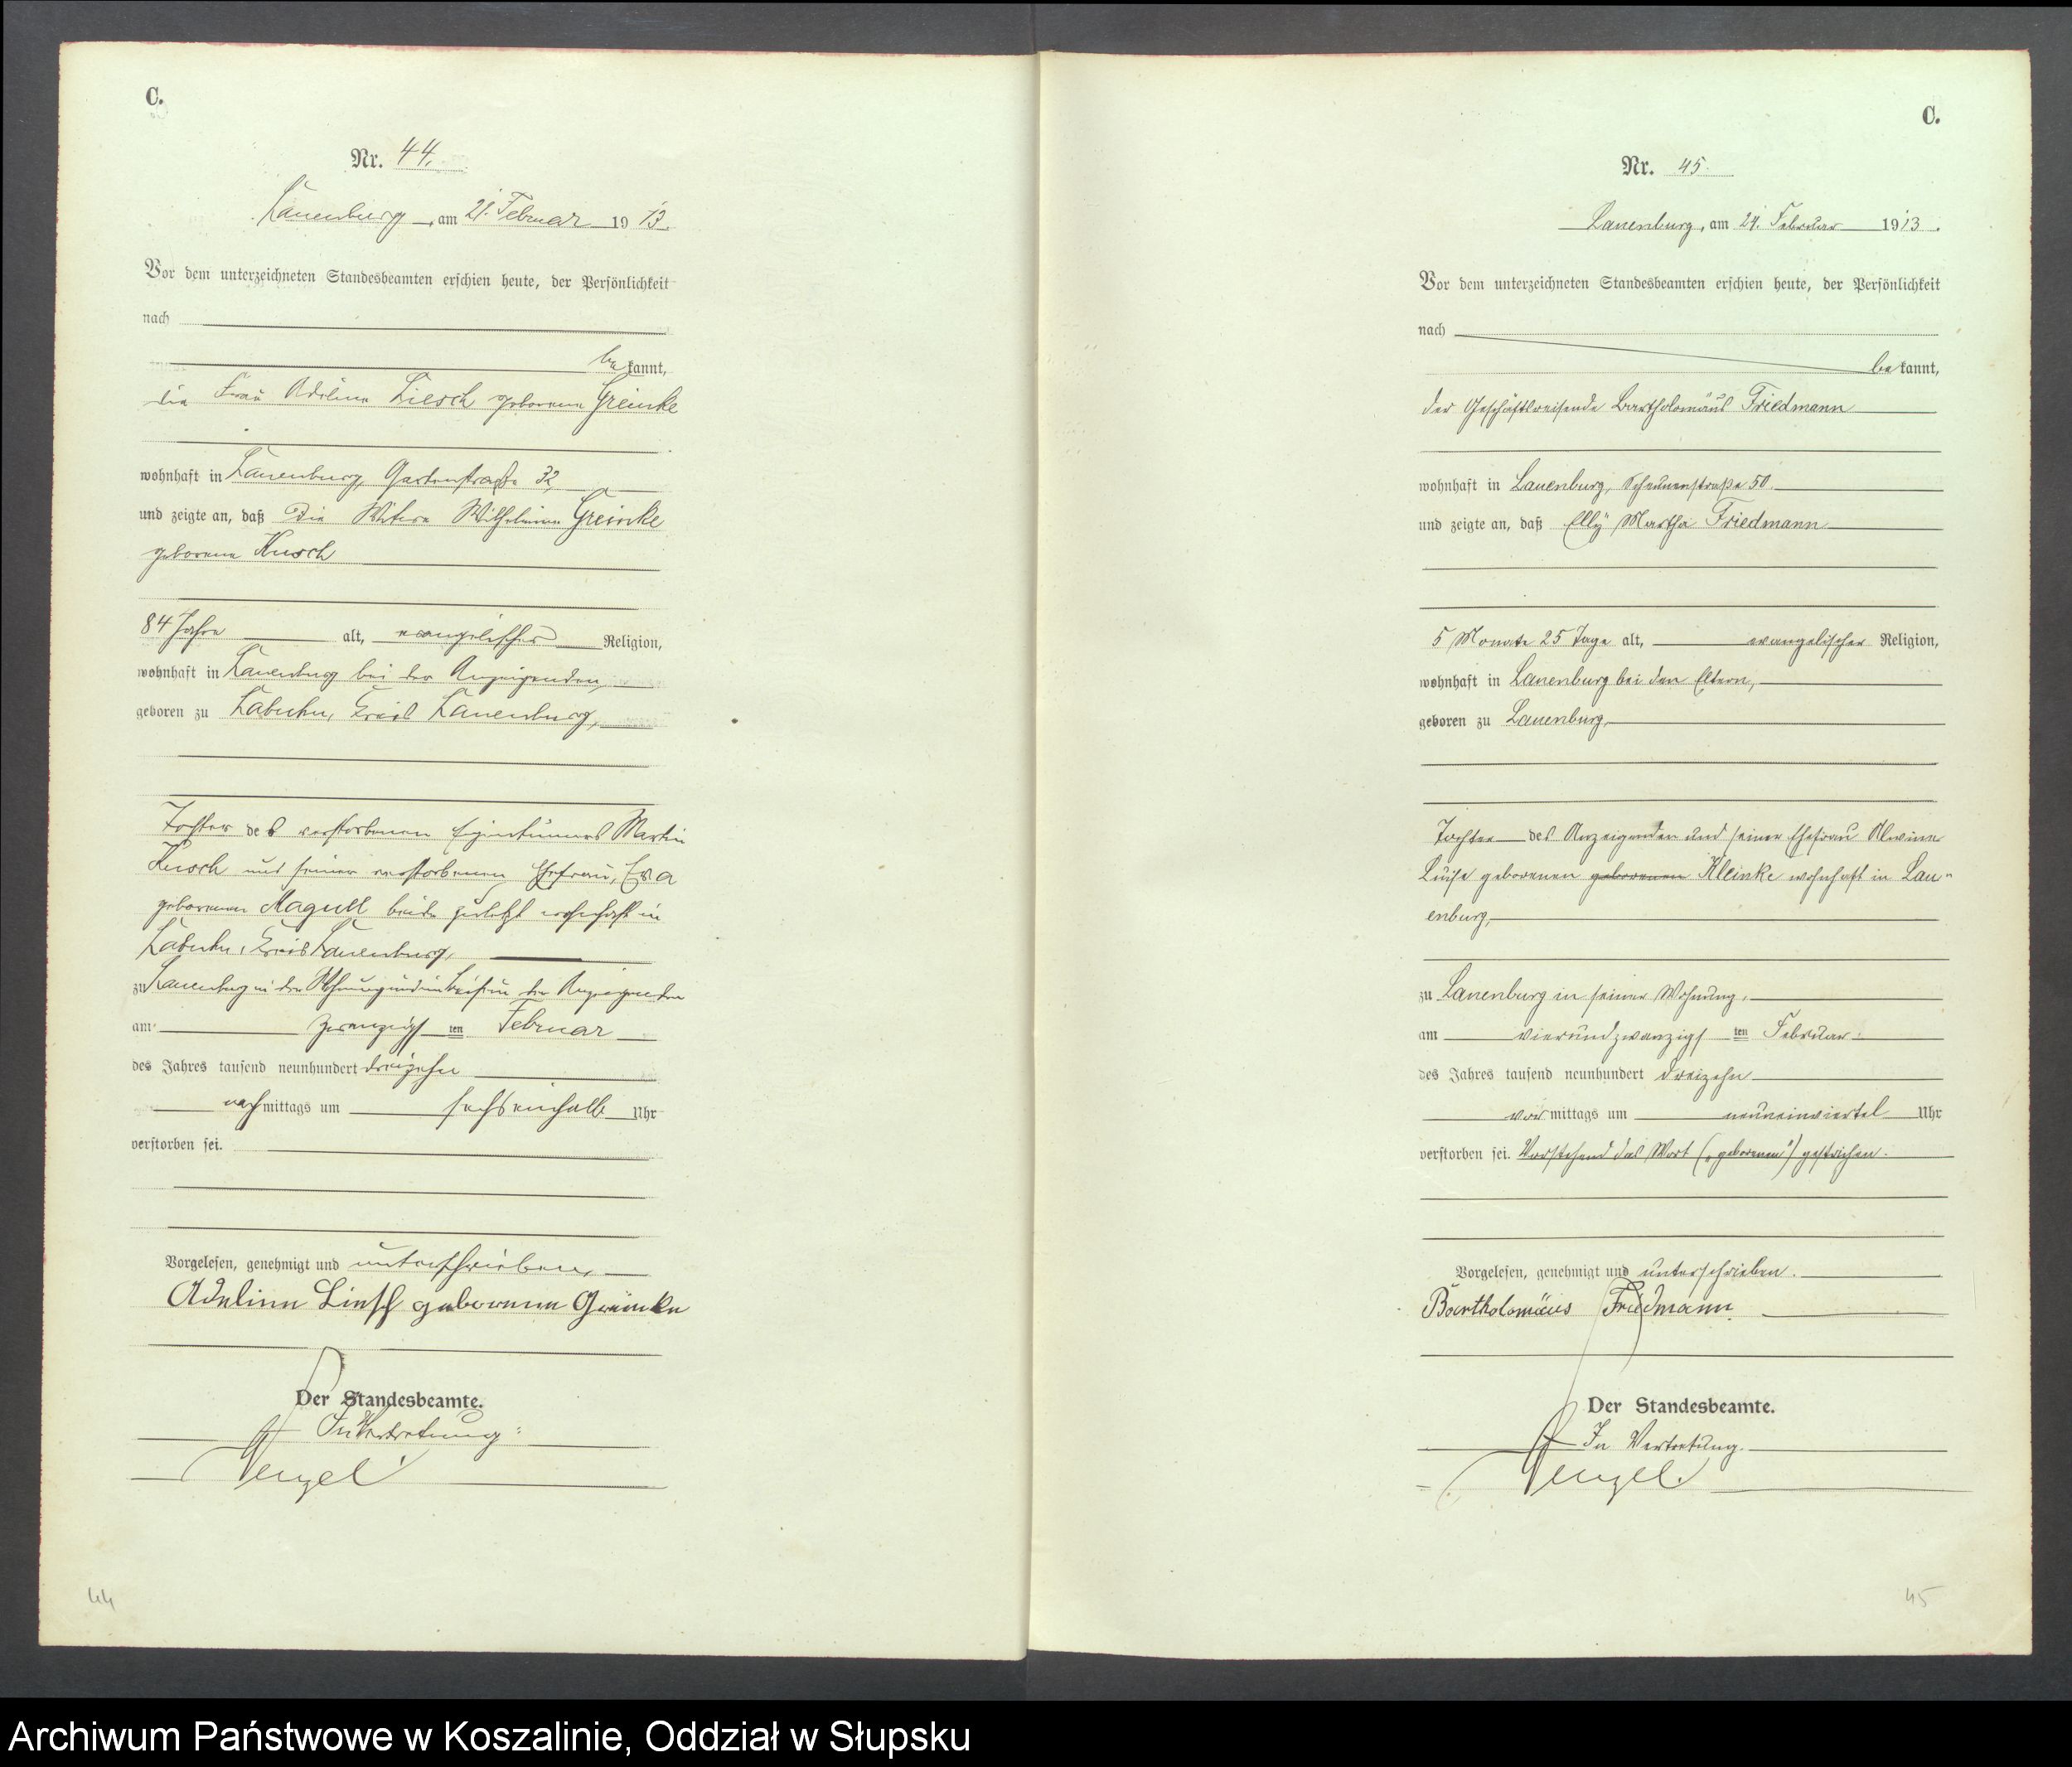 C.
Nr. 44.
Lauenburg, am 21. Februar 1913.
Vor dem unterzeichneten Standesbeamten erschien heute, der Persönlichkeit
nach
bekannt,
die Frau Adeline Liesch geborene Greinke
wohnhaft in Lauenburg, Gartenstraße 32,
und zeigte an, daß die Witwe Wilhelmine Greinke
geborene Kusch
84 Jahre alt, evangelischer Religion,
wohnhaft in Lauenburg bei der Anzeigenden,
geboren zu Labuhn, Kreis Lauenburg,
Tochter des verstorbenen Eigentümers Martin
Kusch und seiner verstorbenen Ehefrau, Eva
geborenen Magull beide zuletzt wohnhaft in
Labuhn, Kreis Lauenburg,
zu Lauenburg in der Wohnung und im Beisein der Anzeigenden
am zwanzigsten Februar
des Jahres tausend neunhundert dreizehn
nachmittags um sechseinhalb Uhr
verstorben sei.
Vorgelesen, genehmigt und unterschrieben,
Adeline Liesch geborene Greinke
Der Standesbeamte.
In Vertretung:
44
C.
Nr. 45.
Lauenburg, am 24. Februar 1913.
Vor dem unterzeichneten Standesbeamten erschien heute, der Persönlichkeit
nach
bekannt,
der Geschäftsreisende Bartholomäus Friedmann
wohnhaft in Lauenburg, Scheunenstraße 50.
und zeigte an, daß Elly Martha Friedmann
5 Monate 25 Tage alt, evangelischer Religion,
wohnhaft in Lauenburg bei den Eltern,
geboren zu Lauenburg,
Tochter des Anzeigenden und seiner Ehefrau Alwine
Luise geborenen geborenen Kleinke wohnhaft in Lau-
enburg,
zu Lauenburg in seiner Wohnung,
am vierundzwanzigsten Februar
des Jahres tausend neunhundert dreizehn
vormittags um neuneinviertel Uhr
verstorben sei. Vorstehend das Wort („geborenen") gestrichen.
Vorgelesen, genehmigt und unterschrieben.
Bartholomäus Friedmann.
Der Standesbeamte.
In Vertretung.
45
Archiwum Państwowe w Koszalinie, Oddział w Słupsku